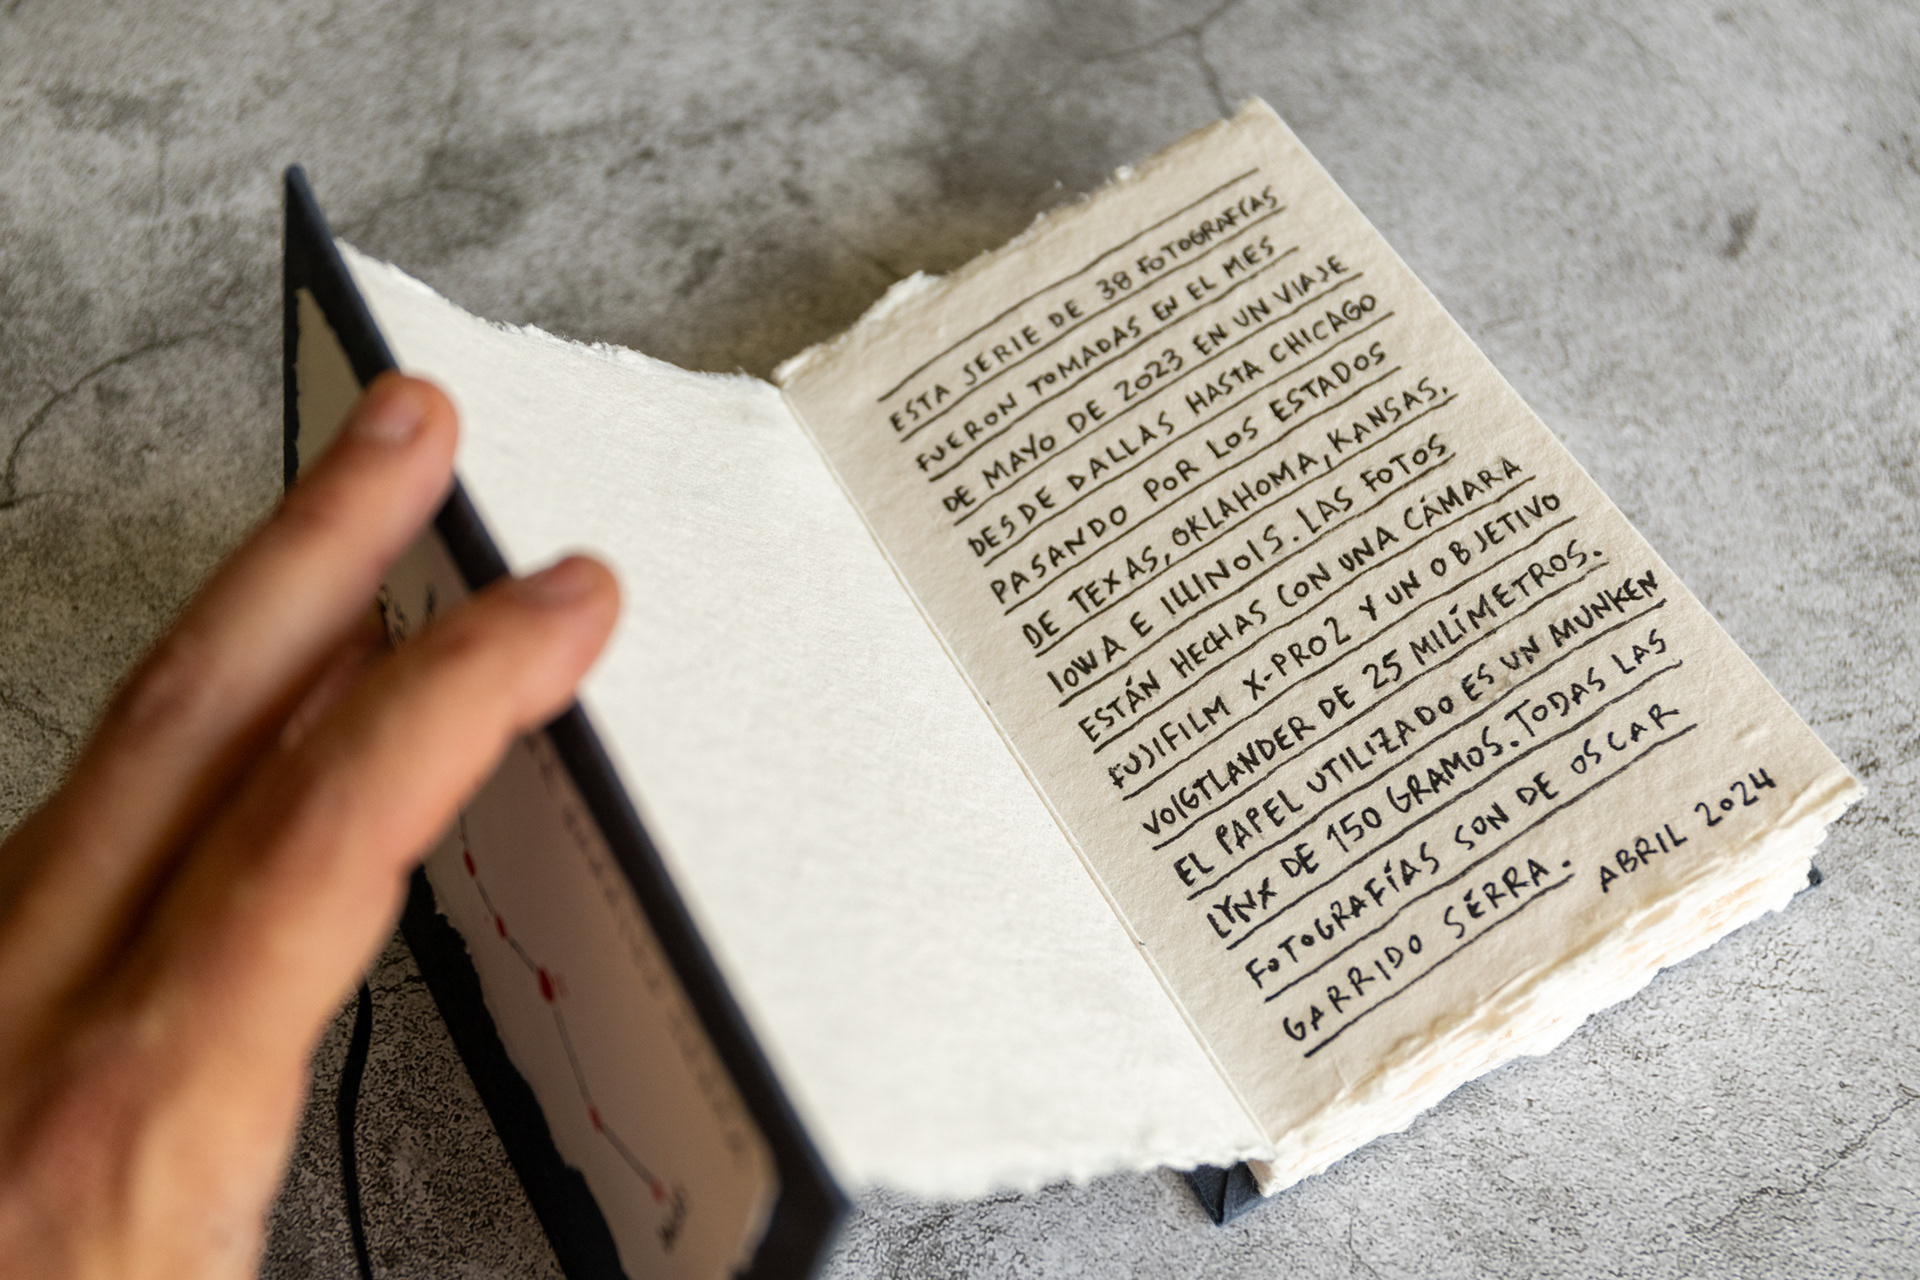 ESTA SERIE DE 38 FOTOGRAFÍAS
FUERON TOMADAS EN EL MES
DE MAYO DE 2023 EN UN VIAJE
DESDE DALLAS HASTA CHICAGO
PASANDO POR LOS ESTADOS
DE TEXAS, OKLAHOMA, KANSAS,
IOWA E ILLINOIS. LAS FOTOS
ESTÁN HECHAS CON UNA CÁMARA
FUJIFILM X-PRO2 Y UN OBJETIVO
VOIGTLANDER DE 25 MILÍMETROS.
EL PAPEL UTILIZADO ES UN MUNKEN
LYNX DE 150 GRAMOS. TODAS LAS
FOTOGRAFÍAS SON DE OSCAR
GARRIDO SERRA. ABRIL 2024